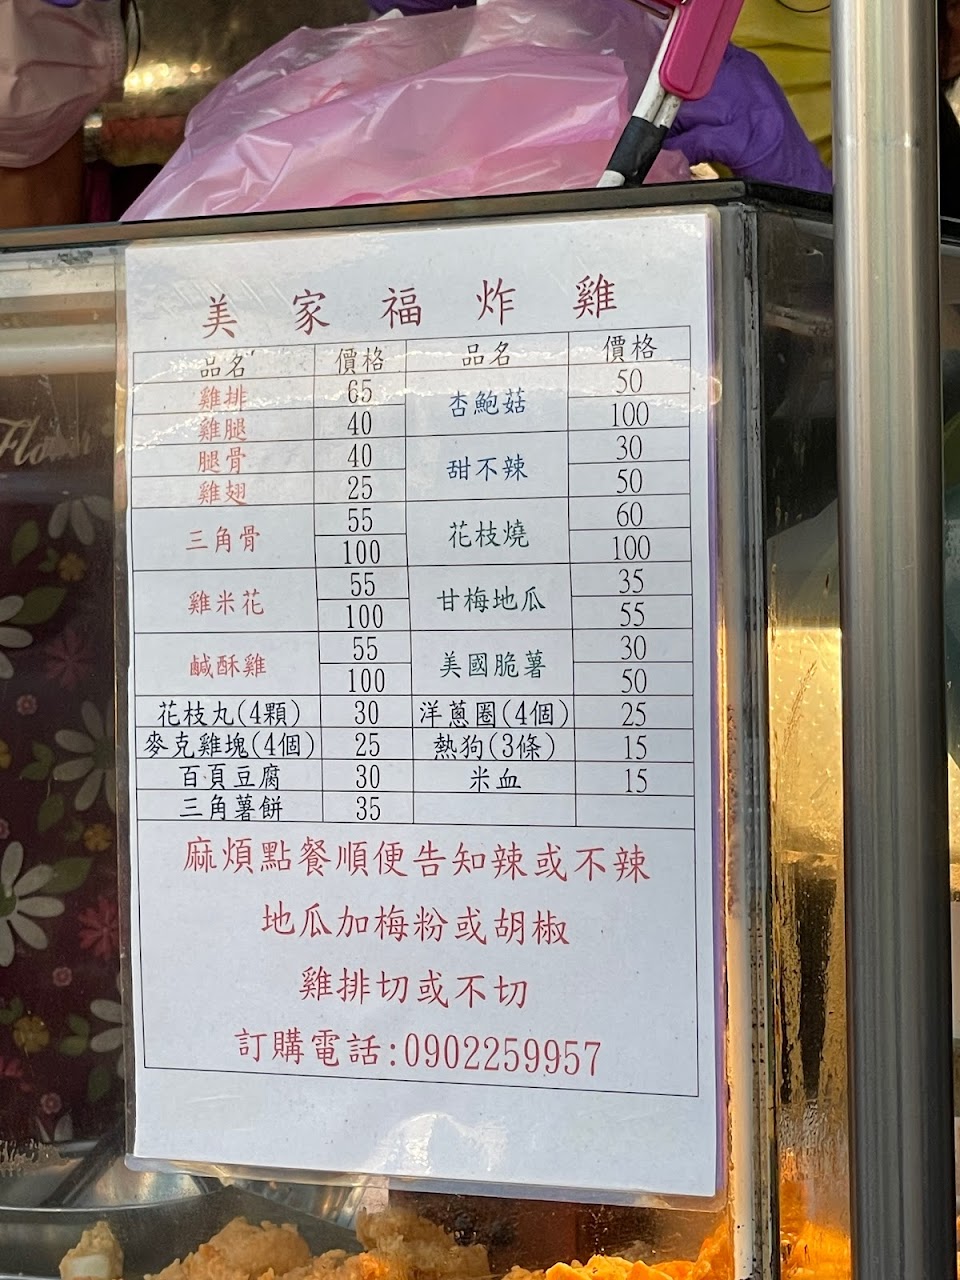 美家福炸雞
品名 價格 品名 價格
雞排 65 杏鮑菇 50
雞腿 40 100
腿骨 40 甜不辣 30
雞翅 25 50
三角骨 55 花枝燒 60
100 100
雞米花 55 甘梅地瓜 35
100 55
鹹酥雞 55 美國脆薯 30
100 50
花枝丸(4顆) 30 洋蔥圈(4個) 25
麥克雞塊(4個) 25 熱狗(3條) 15
百頁豆腐 30 米血 15
三角薯餅 35
麻煩點餐順便告知辣或不辣
地瓜加梅粉或胡椒
雞排切或不切
訂購電話:0902259957